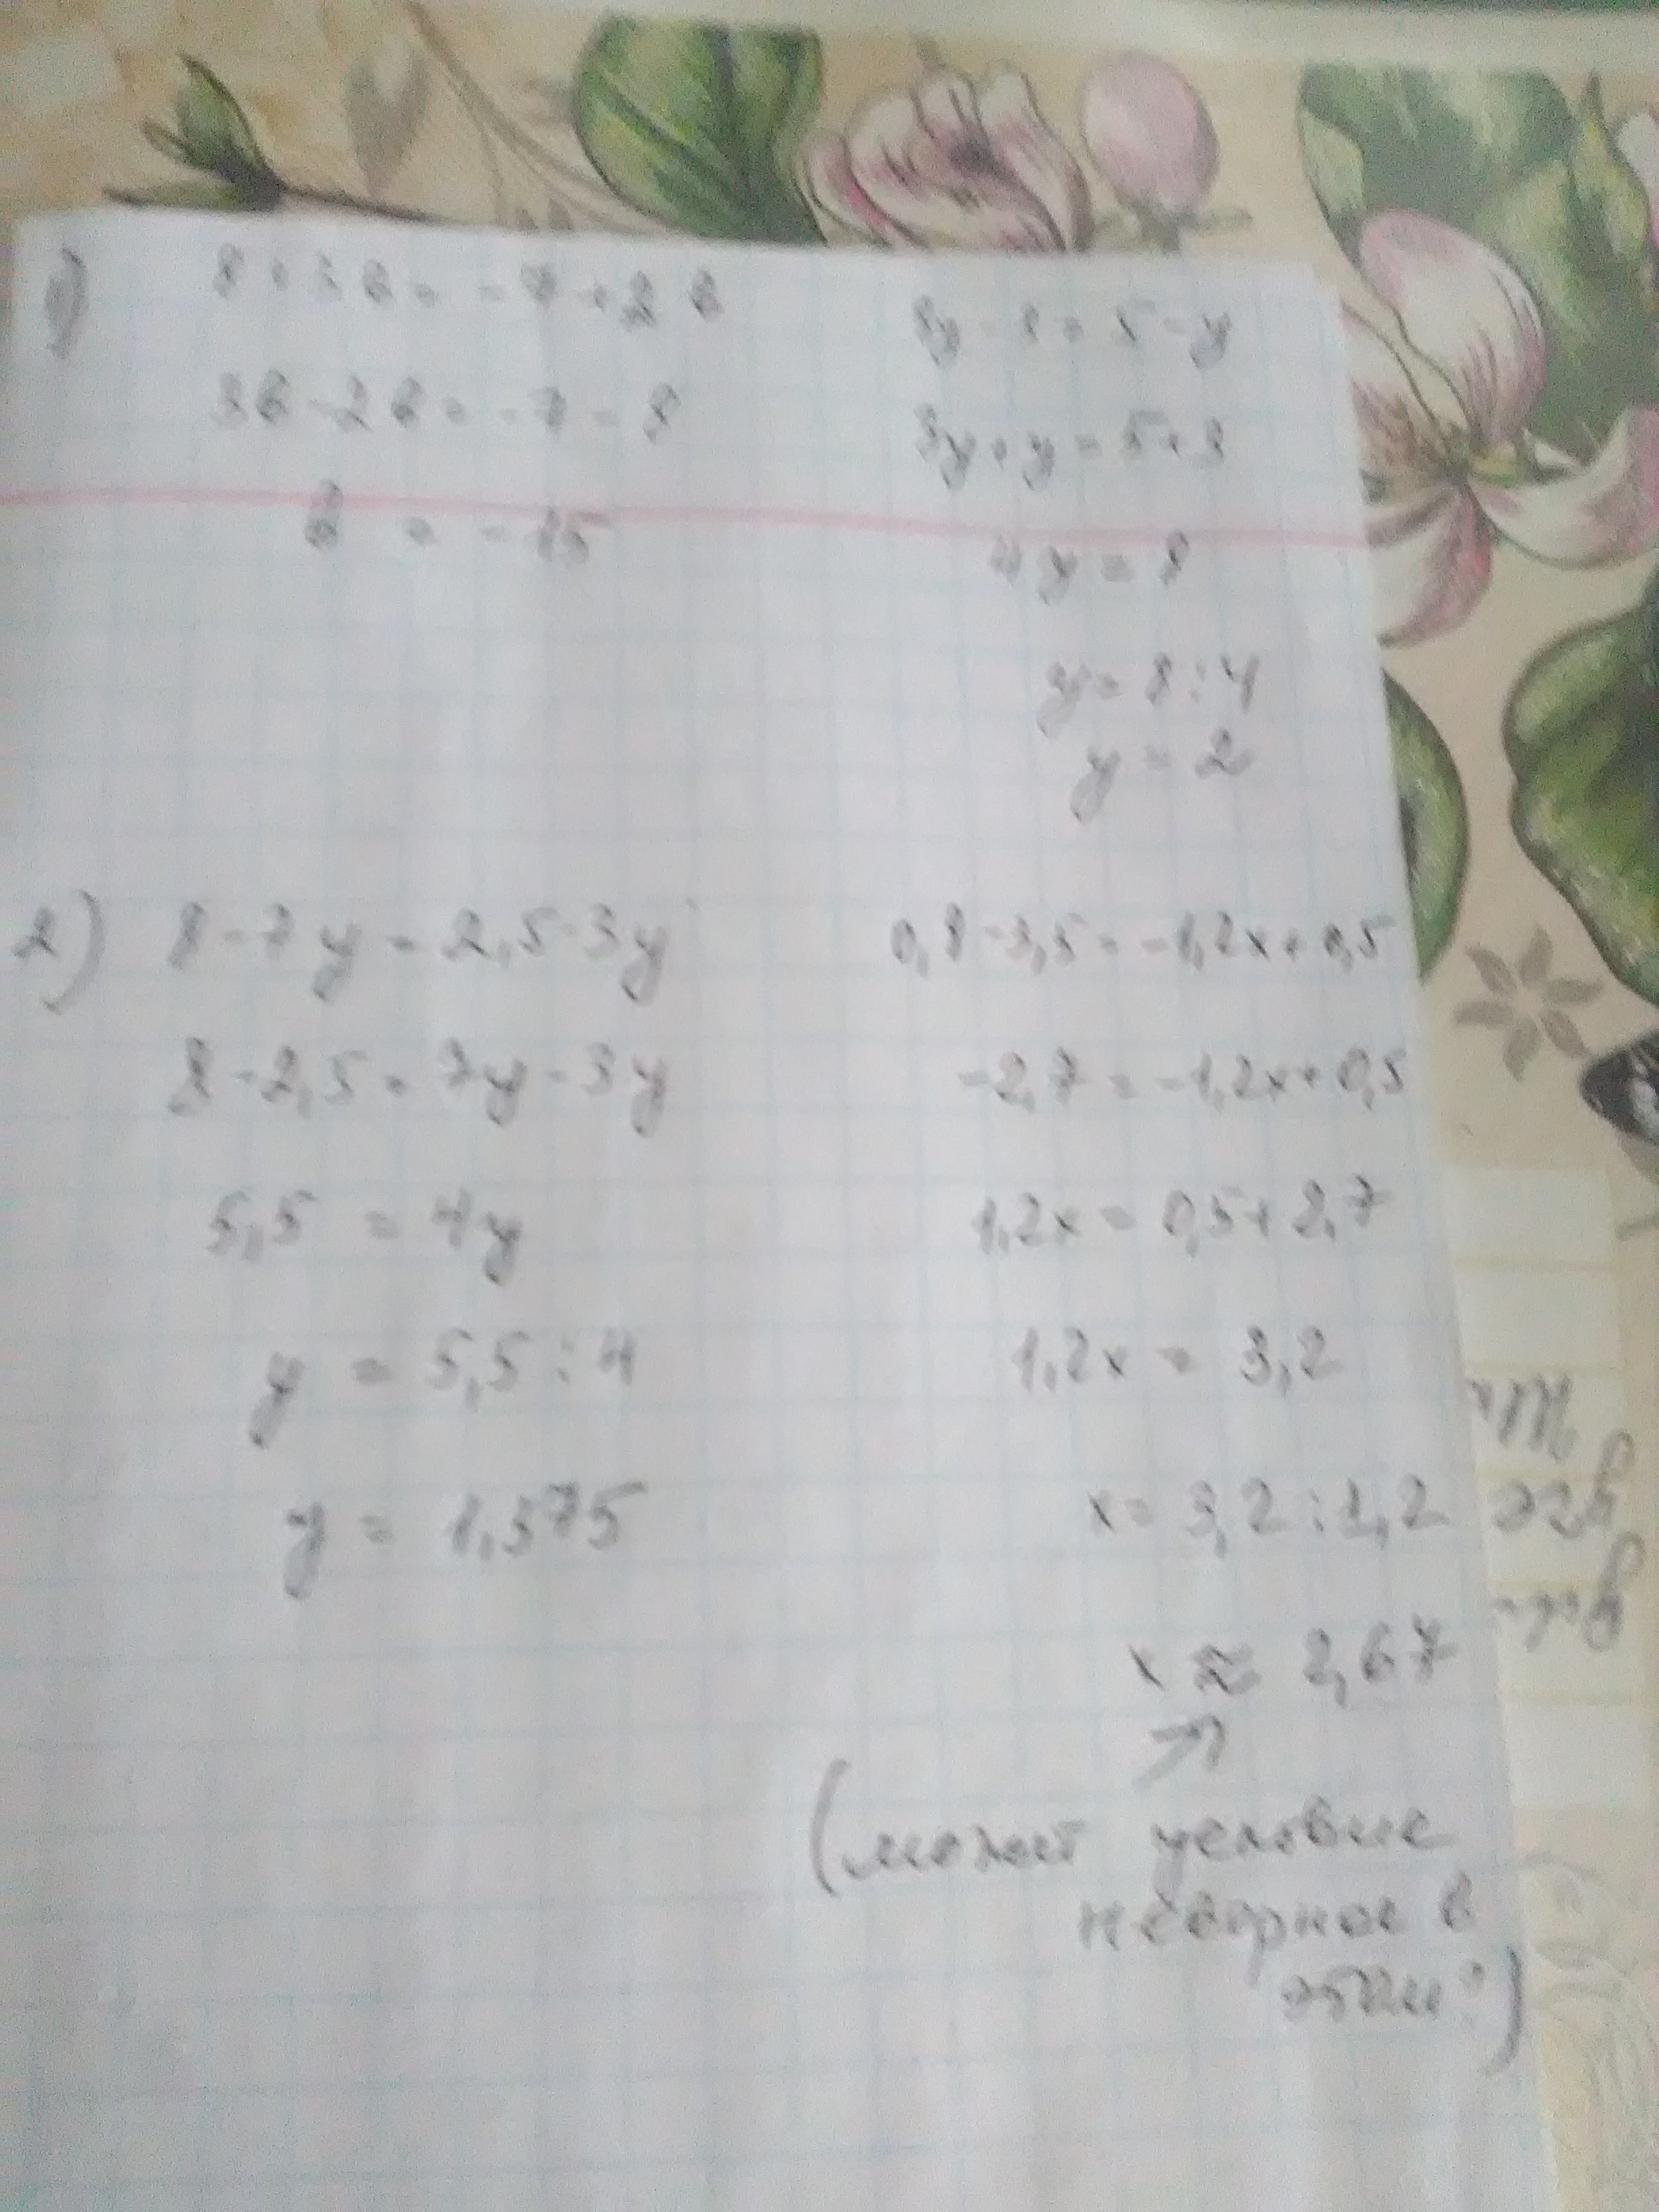 1) 8+3в = -7+2в
3в-2в = -7-8
в = -15
3y-3 = 5-y
3y+y = 5+3
4y = 8
y = 8:4
y = 2
2) 8-7y = 2,5-3y
8-2,5 = 7y-3y
5,5 = 4y
y = 5,5:4
y = 1,375
0,8-3,5 = -1,2x+0,5
-2,7 = -1,2x+0,5
1,2x = 0,5+2,7
1,2x = 3,2
x = 3,2:1,2
x ≈ 2,67
(может условие
неверное в
этом?)